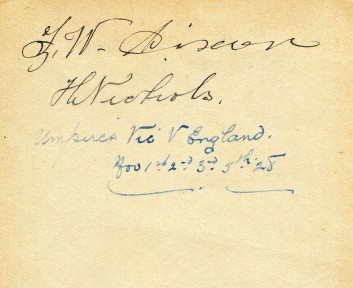 H Nichols.
Umpires Vic V England.
Nov 1st 2nd 3rd 5th 28